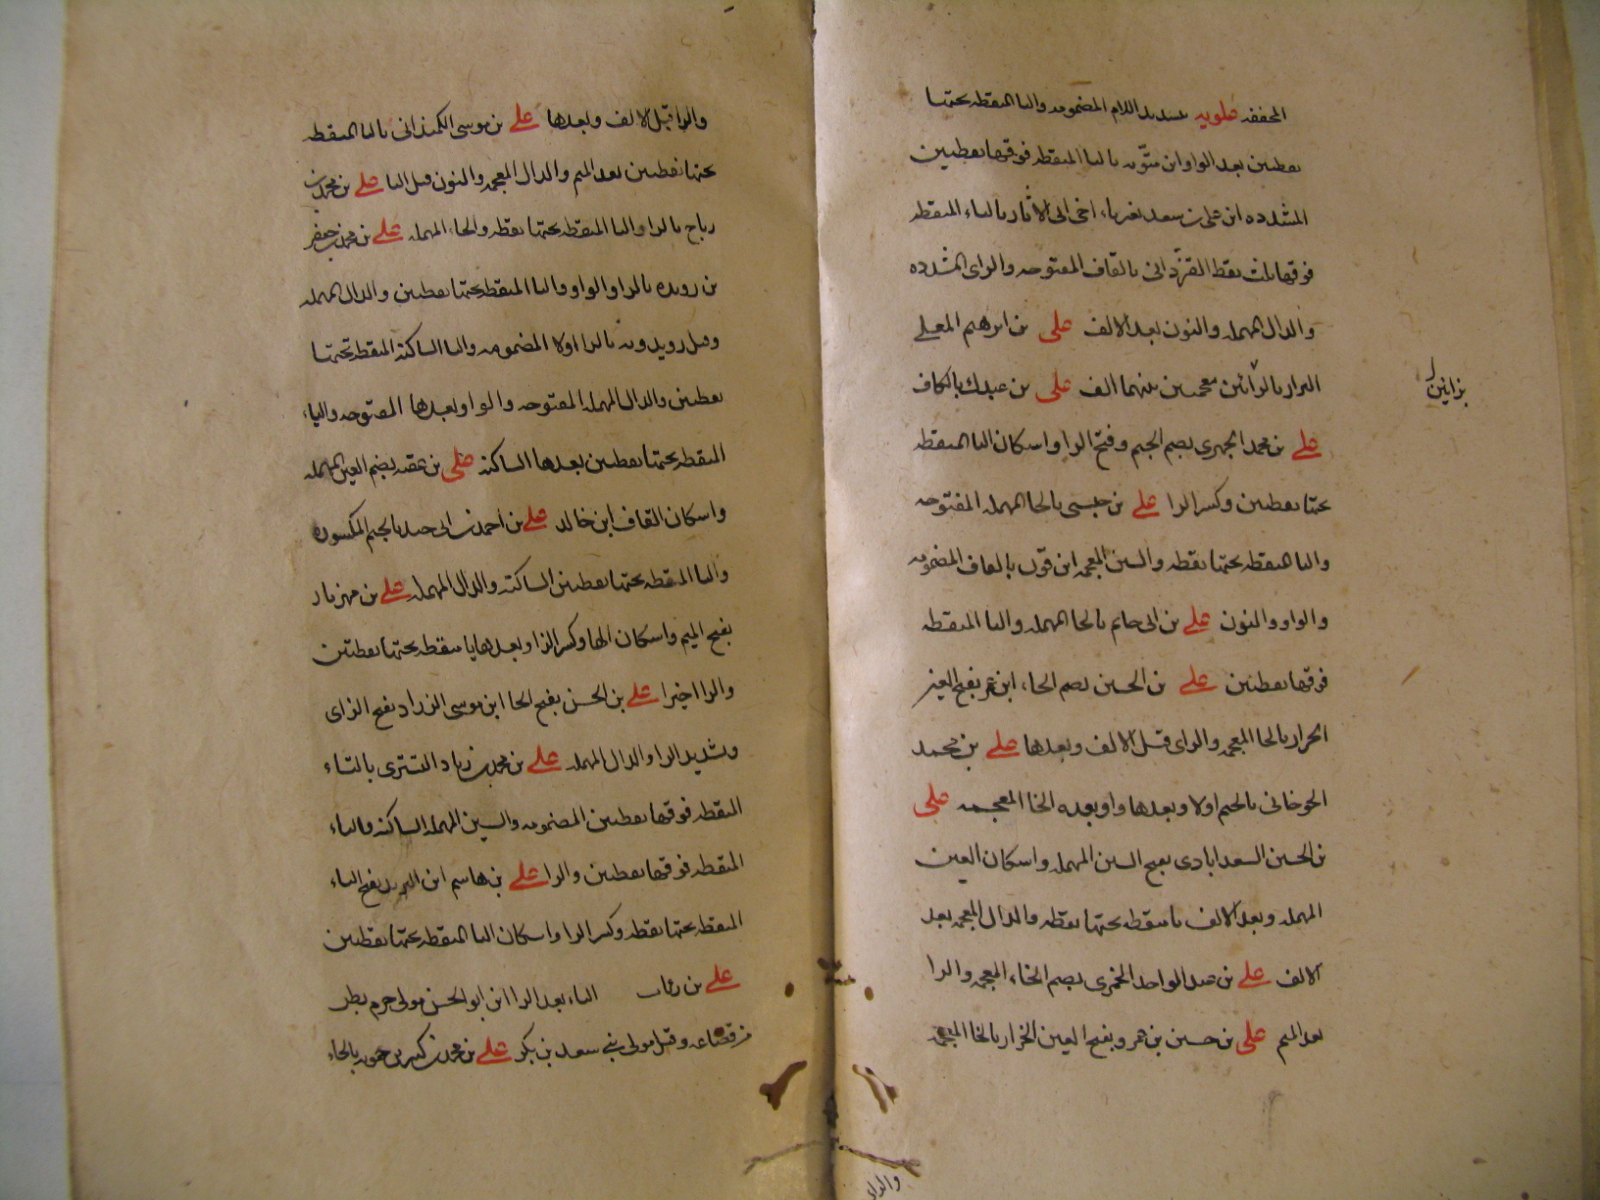 المخففه علويه بتشديد اللام المضمومه واليا المنقطه تحتها
نقطتين بعد الواو ابن متّويه باليا المنقطه فوقها نقطتين
المشدده ابن على بن سعد اخى ابى الاثار بالثاء المنقطه
فوقها ثلث نقط القزدانى بالقاف المفتوحه والزاى المشدده
والدال المهمله والنون بعد الالف على بن ابرهيم المعلى
البزاز بالزائين معجمتين بينهما الف على بن عبدك بالكاف
بزائين
على بن محمد الجهرى بضم الجيم وفتح الرا واسكان اليا المنقطه
تحتها نقطتين وكسر الرا على بن حبشى بالحا المهمله المفتوحه
والبا المنقطه تحتها نقطه والشين المعجمه ابن قونى بالقاف المضمومه
والواو والنون على بن ابى حاتم بالحا المهمله والتا المنقطه
فوقها نقطتين على بن الحسين بضم الحا، ابن عمر بفتح العين
الخزاز بالخا المعجمه والزاى قبل الالف وبعدها على بن محمد
الجوخانى بالجيم اولا وبعدها واو بعده الخا المعجمه على
بن الحسين السعدابادى بفتح السين المهمله واسكان العين
المهمله وبعد الالف با منقطه تحتها نقطه والدال المعجمه بعد
الالف على بن عبد الواحد الخمرى بضم الخاء المعجمه والرا
بعد الميم على بن حسين بن عمرو بفتح العين الخزاز بالخا المعجمه
والزا
والزا قبل الالف وبعدها على بن موسى الكمندانى باليا المنقطه
تحتها نقطتين بعد الميم والدال المعجمه والنون قبل اليا على بن محمد بن
رباح بالرا والبا المنقطه تحتها نقطه والحاء المهمله على بن محمد بن جعفر
بن رويده بالرا والواو واليا المنقطه تحتها نقطتين والدال المهمله
وقيل رويدويه بالرا اولا المضمومه واليا الساكنه المنقطه تحتها
نقطتين والدال المهمله المفتوحه والواو بعدها المفتوحه والياء
المنقطه تحتها نقطتين بعدها الساكنه على بن عقبه بضم العين المهمله
واسكان القاف ابن خالد على بن احمد بن ابى جيد بالجيم المكسوره
واليا المنقطه تحتها نقطتين الساكنه والدال المهمله على بن مهزيار
بفتح الميم واسكان الها وكسر الزا وبعدها يا منقطه تحتها نقطتين
والرا اخيرا على بن الحسن بفتح الحا ابن موسى الزراد بفتح الزاى
وتشديد الرا والدال المهمله على بن محمد بن زياد التسترى بالتاء
المنقطه فوقها نقطتين المضمومه والسين المهمله الساكنه والتاء
المنقطه فوقها نقطتين والرا على بن هاشم ابن البريد بفتح الباء
المنقطه تحتها نقطه وكسر الرا واسكان اليا المنقطه تحتها نقطتين
على بن رئاب الباء بعد الرا ابن ابو الحسن مولى جرم بطن
من قضاعه وقيل مولى بنى سعد بن بكر على بن محمد بن بالحاء